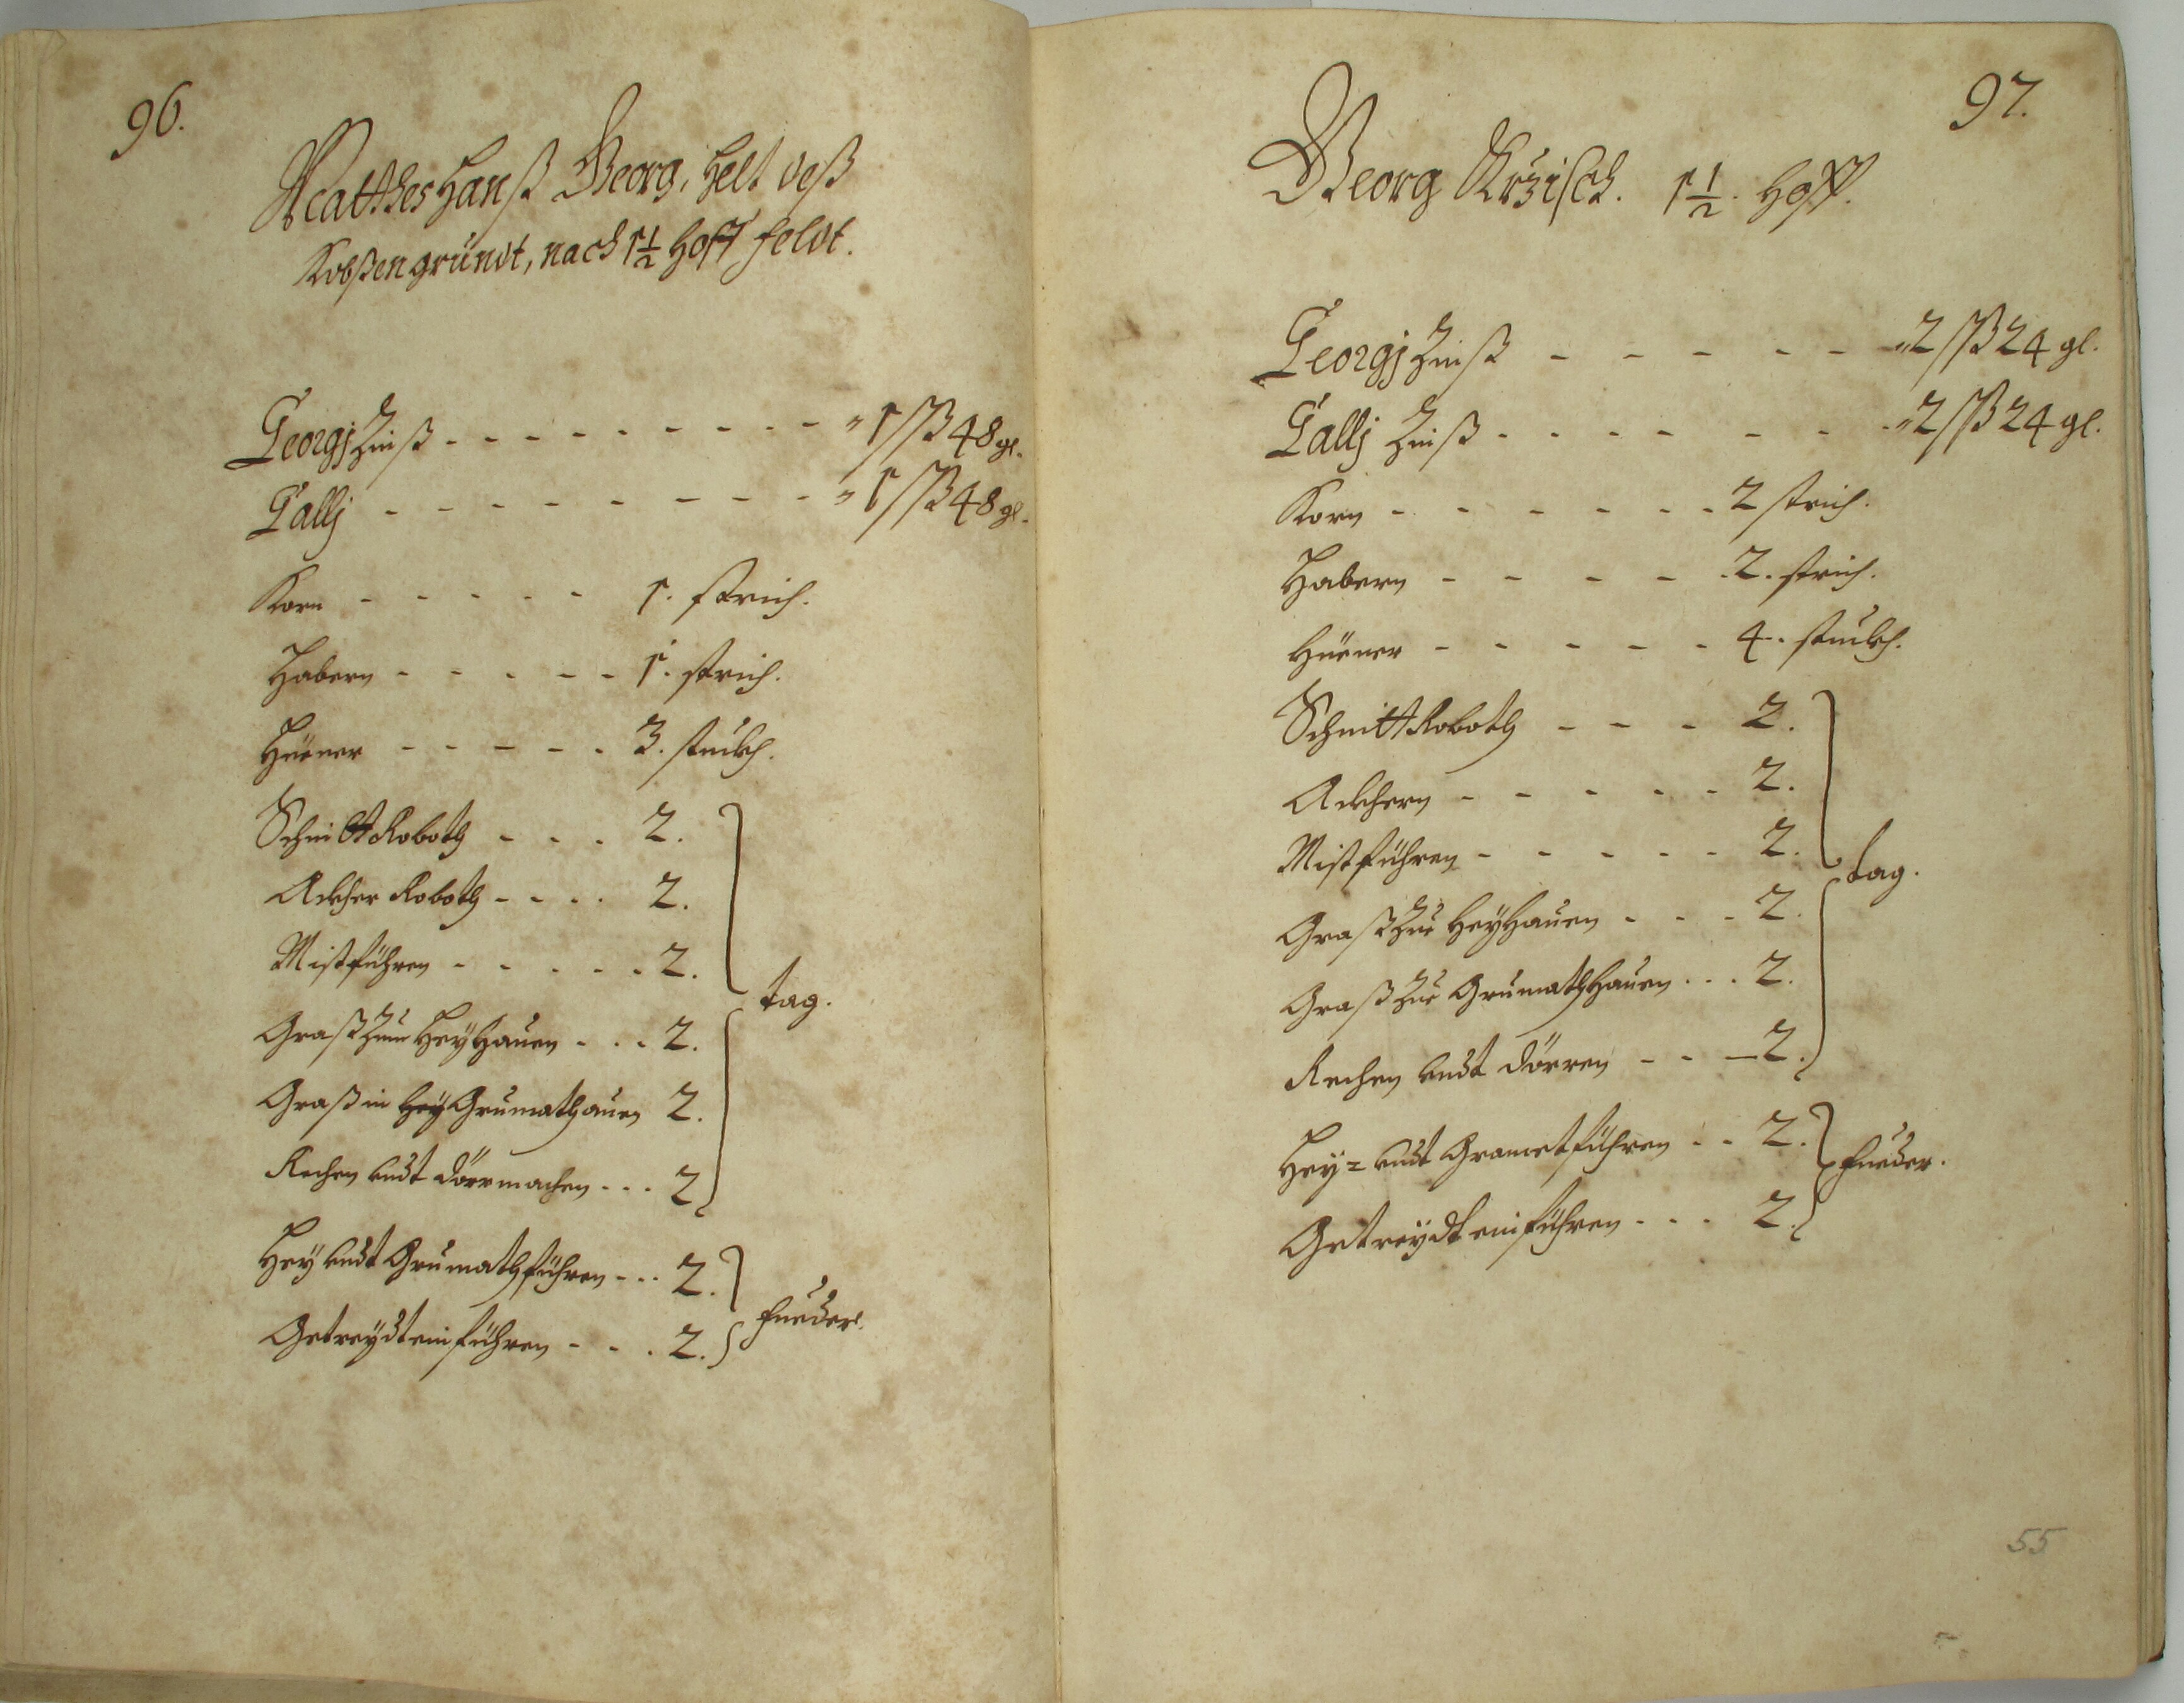 96.
Matthes Hanß Georg, helt deß
Kobßen gründt, nach 1 1/2 Hoff feldt.
Georgj Zinß - - - - - - - - - - " 1 ßß 48 gl.
Gallj - - - - - - - - - " 1 ßß 48 gl.
Korn - - - - - 1. strich.
Habern - - - - - 1. strich.
Hüener - - - - - 3. stückh.
Schnitt Roboth - - - 2.
Ackher Roboth - - - - 2.
Mistführen - - - - - 2.
tag.
Graß zum Heyhauen - - - 2.
Graß in Hey Grumathauen 2.
Rechen undt dörrmachen - - - 2
Hey undt Grumathführen - - - 2.
fueder.
Getreydt einführen - - - 2.
97.
Georg Kržisch. 1 1/2. Hoff.
Georgj Zinß - - - - - - " 2 ßß 24 gl.
Gallj Zinß - - - - - - - " 2 ßß 24 gl.
Korn - - - - - - 2 strich.
Habern - - - - 2. strich.
Hüener - - - - - 4. stückh.
Schnitt Roboth - - - 2.
Ackhern - - - - - 2.
Mistführen - - - - - 2.
tag.
Graß Zue Heyhauen - - - 2.
Graß Zue Grumathhauen - - - 2.
Rechen undt dörren - - - 2.
Hey= undt Grametführen - - 2.
fueder.
Getreydt einführen - - - 2.
55